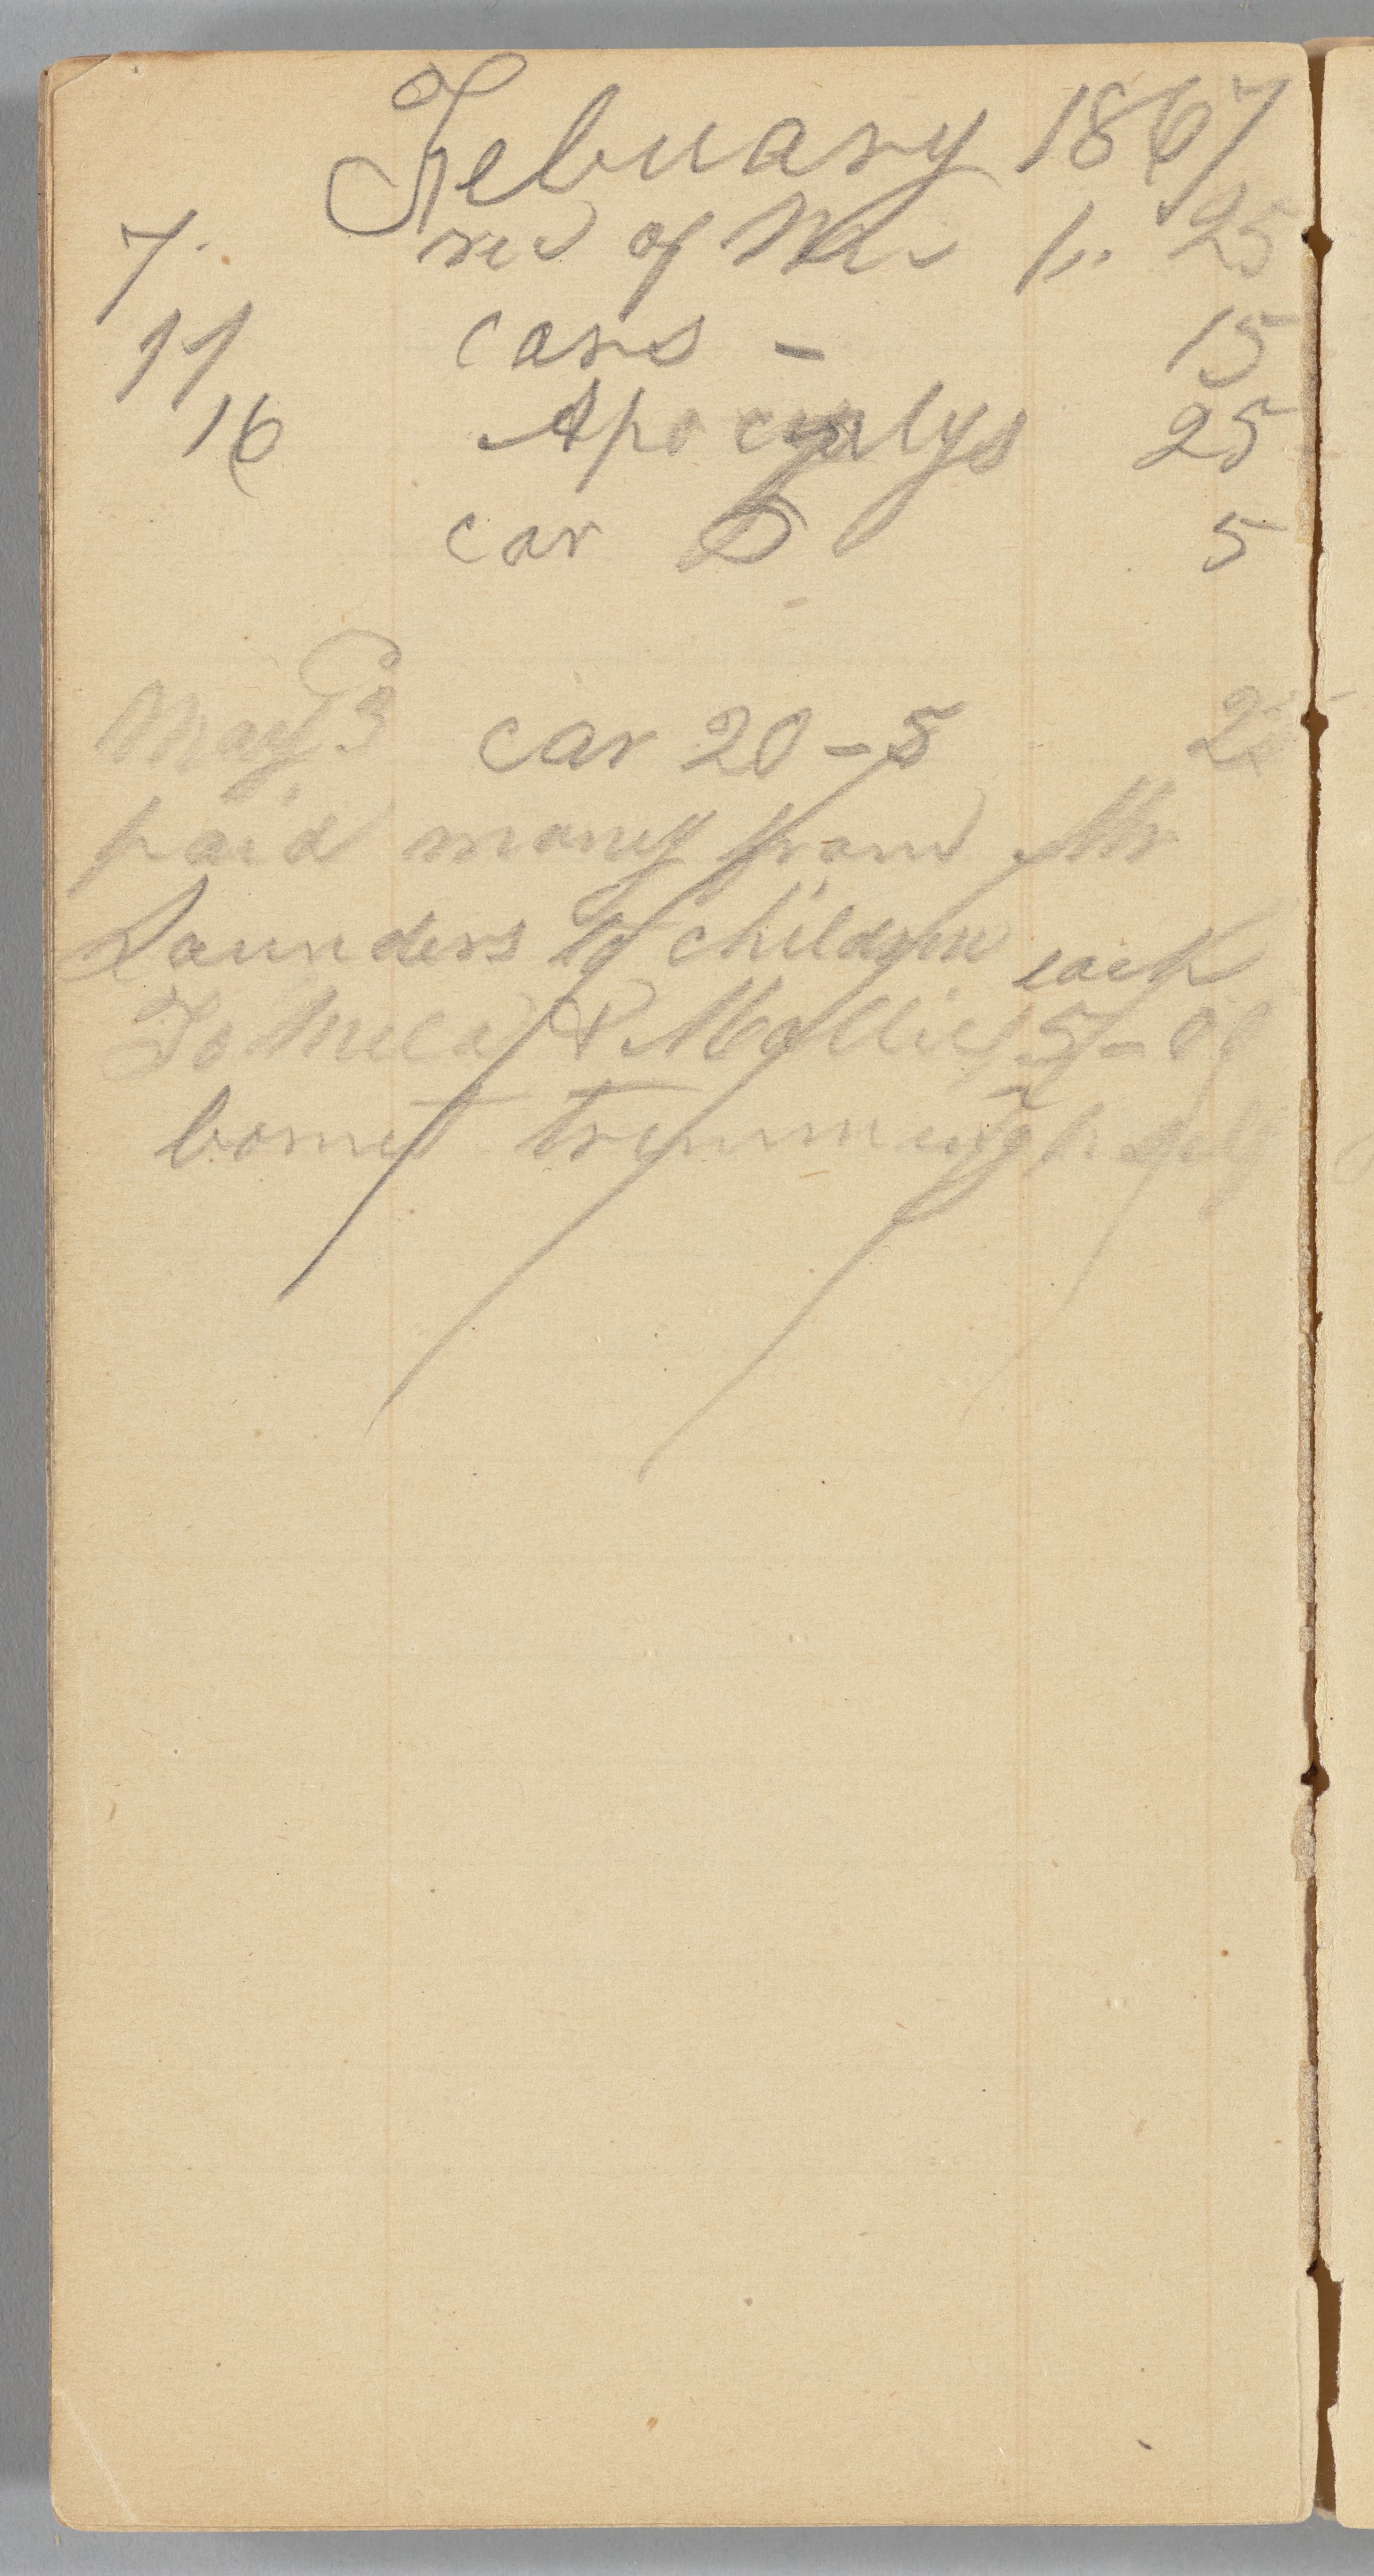 Febuary 1867
7. red of Mr 1.. 25
11 cars - 15
16 Apocyalys 25
car 5 5
May 3 car 20-5 25
paid money from Mr
Saunders to children each
To Meca & Mollie 5-00
bonnet trimming